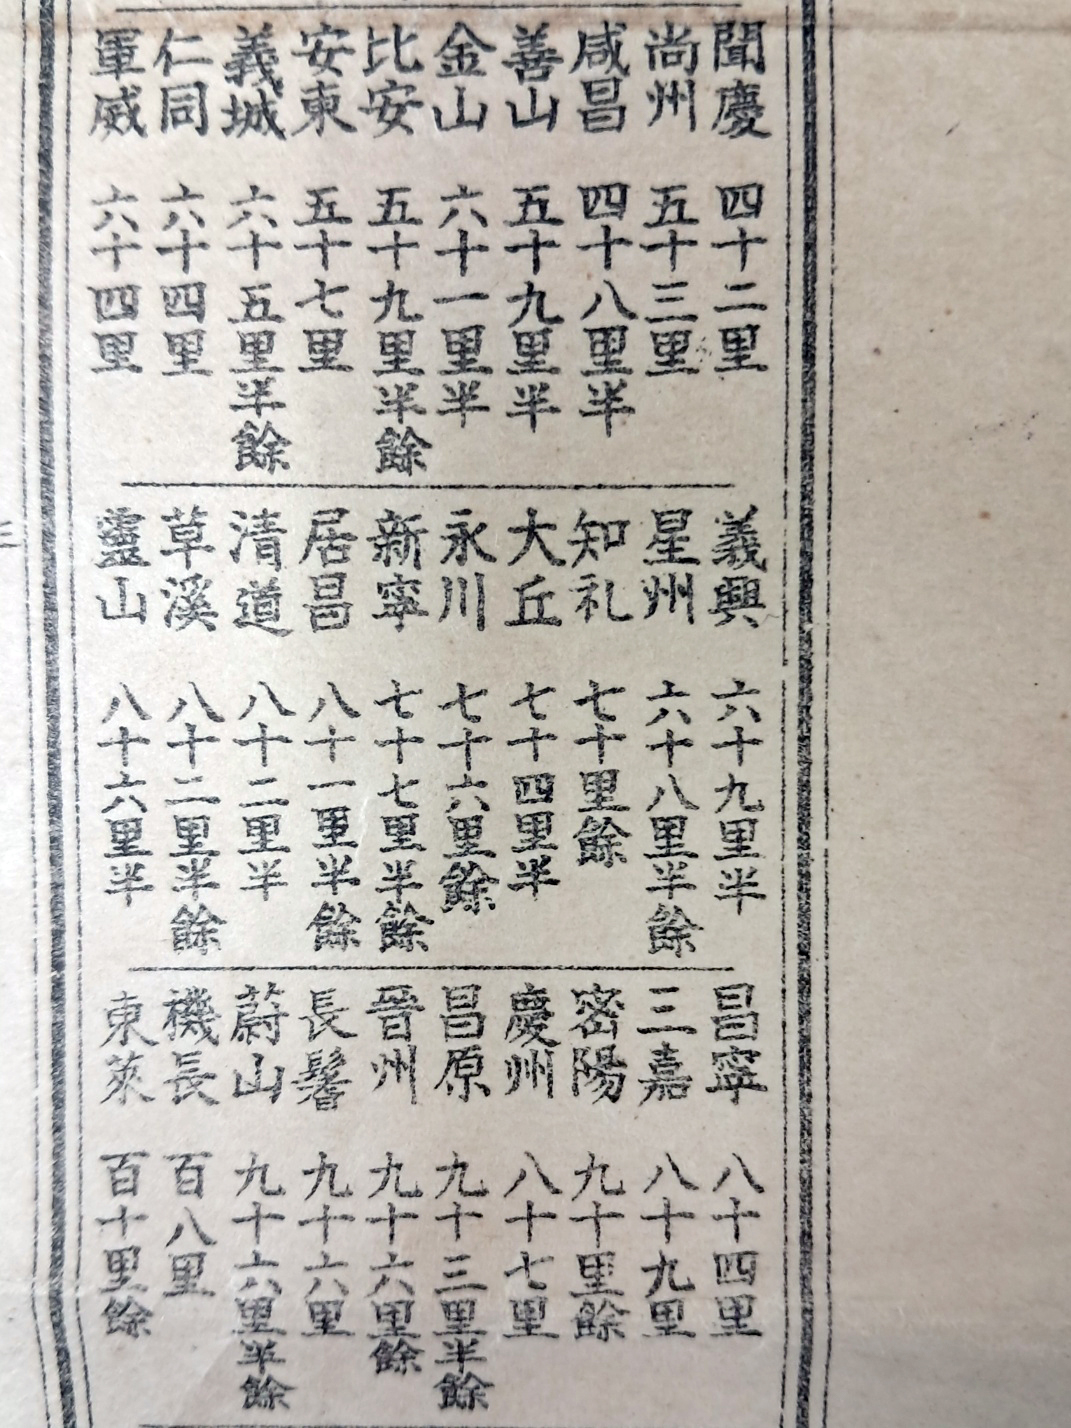 聞慶 四十二里
尚州 五十三里
咸昌 四十八里半
善山 五十九里半
金山 六十一里半
比安 五十九里半餘
安東 五十七里
義城 六十五里半餘
仁同 六十四里
軍威 六十四里
義興 六十九里半
星州 六十八里半餘
知礼 七十里餘
大丘 七十四里半
永川 七十六里餘
新寧 七十七里半餘
居昌 八十一里半餘
清道 八十二里半
草溪 八十二里半餘
靈山 八十六里半
昌寧 八十四里
三嘉 八十九里
密陽 九十里餘
慶州 八十七里
昌原 九十三里半餘
晉州 九十六里餘
長鬐 九十六里
蔚山 九十六里半餘
機長 百八里
東萊 百十里餘
三